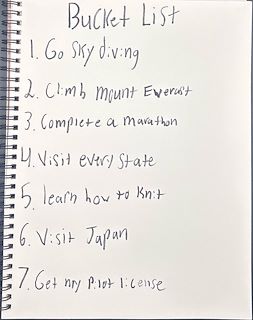 Bucket List
1. Go Sky diving
2. Climb mount Everest
3. Complete a marathon
4. Visit every state
5. learn how to Knit
6. Visit Japan
7. Get my Pilot license